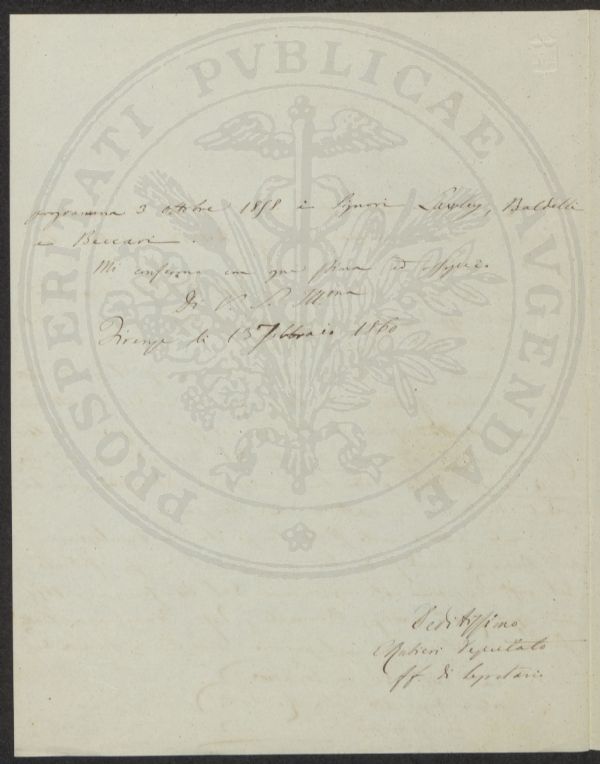 PROSPERITATI PVBLICAE AVGENDAE
programma 3 ottobre 1858 i Signori Lawley, Baldelli
e Beccari.
Mi confermo con piena ed ossequio
Di V. S. Ill.ma
Firenze li 13 Febbraio 1860
Deditissimo
Deputato
ff. di Segretario